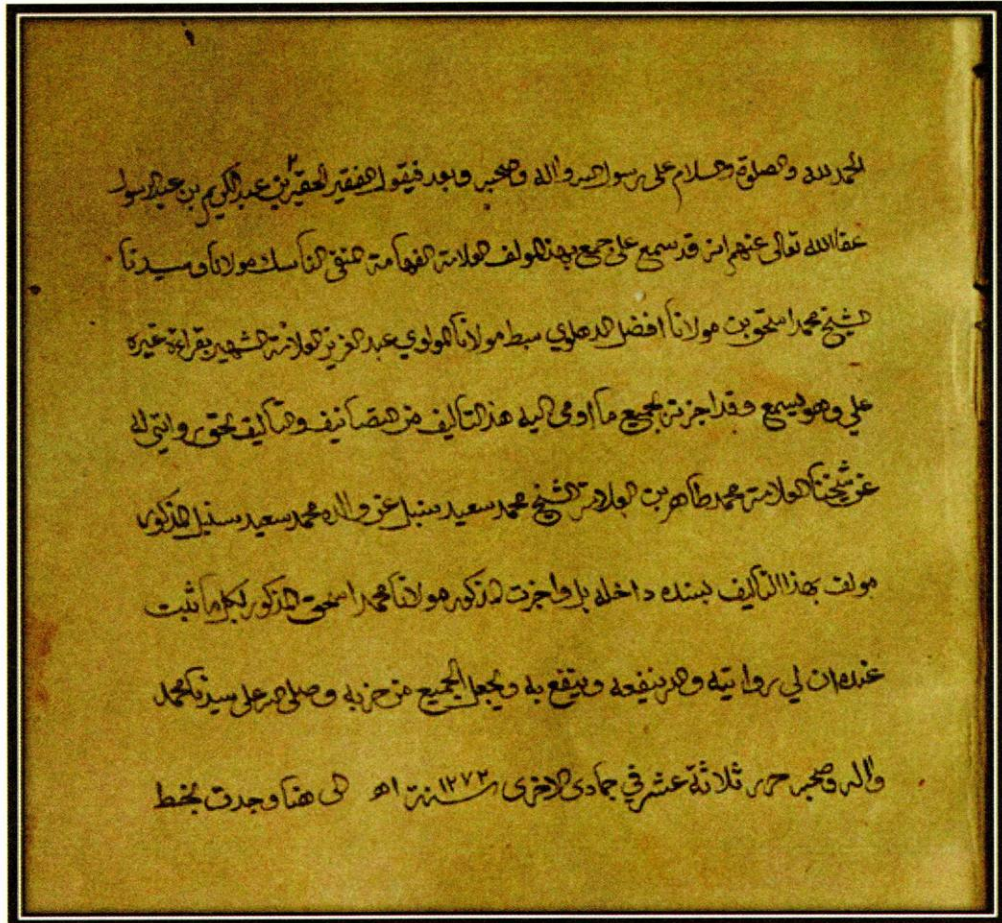 الحمد لله والصلوة والسلام على رسول الله واله وصحبه وبعد فيقول الفقير الحقير بن عبد الكريم بن عبد الرسول
عفا الله تعالى عنهم انه قد سمع على جميع بهذا المولف العلامة الفهامة التقى الناسك مولانا وسيدنا
الشيخ محمد اسحق بن مولانا افضل الدهلوي سبط مولانا المولوي عبد العزيز العلامة الشهير بقراءة غيره
علي وهو يسمع وقد اجزته بجميع ما اومى اليه هذا التاليف من التصانيف والتاليف بحق روايتى له
عن شيخنا العلامة محمد طاهر بن العلامة الشيخ محمد سعيد سنبل عن والده محمد سعيد سنبل المذكور
مولف بهذا التاليف بسنده داخله بل واجزت المذكور مولانا محمد اسحق المذكور بكل ما ثبت
عنده ان لي روايته والله ينفعه وينتفع به ويجعل الجميع من حزبه وصلى الله على سيدنا محمد
واله وصحبه حرر ثلاثة عشر في جمادى الاخرى سنة ١٢٧٣ اه الى هنا وجدت بخط